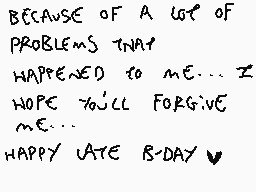 BECAUSE OF A LOT OF
PROBLEMS THAT
HAPPENED TO ME... I
HOPE YOU'LL FORGIVE
ME...
HAPPY LATE B-DAY ♥